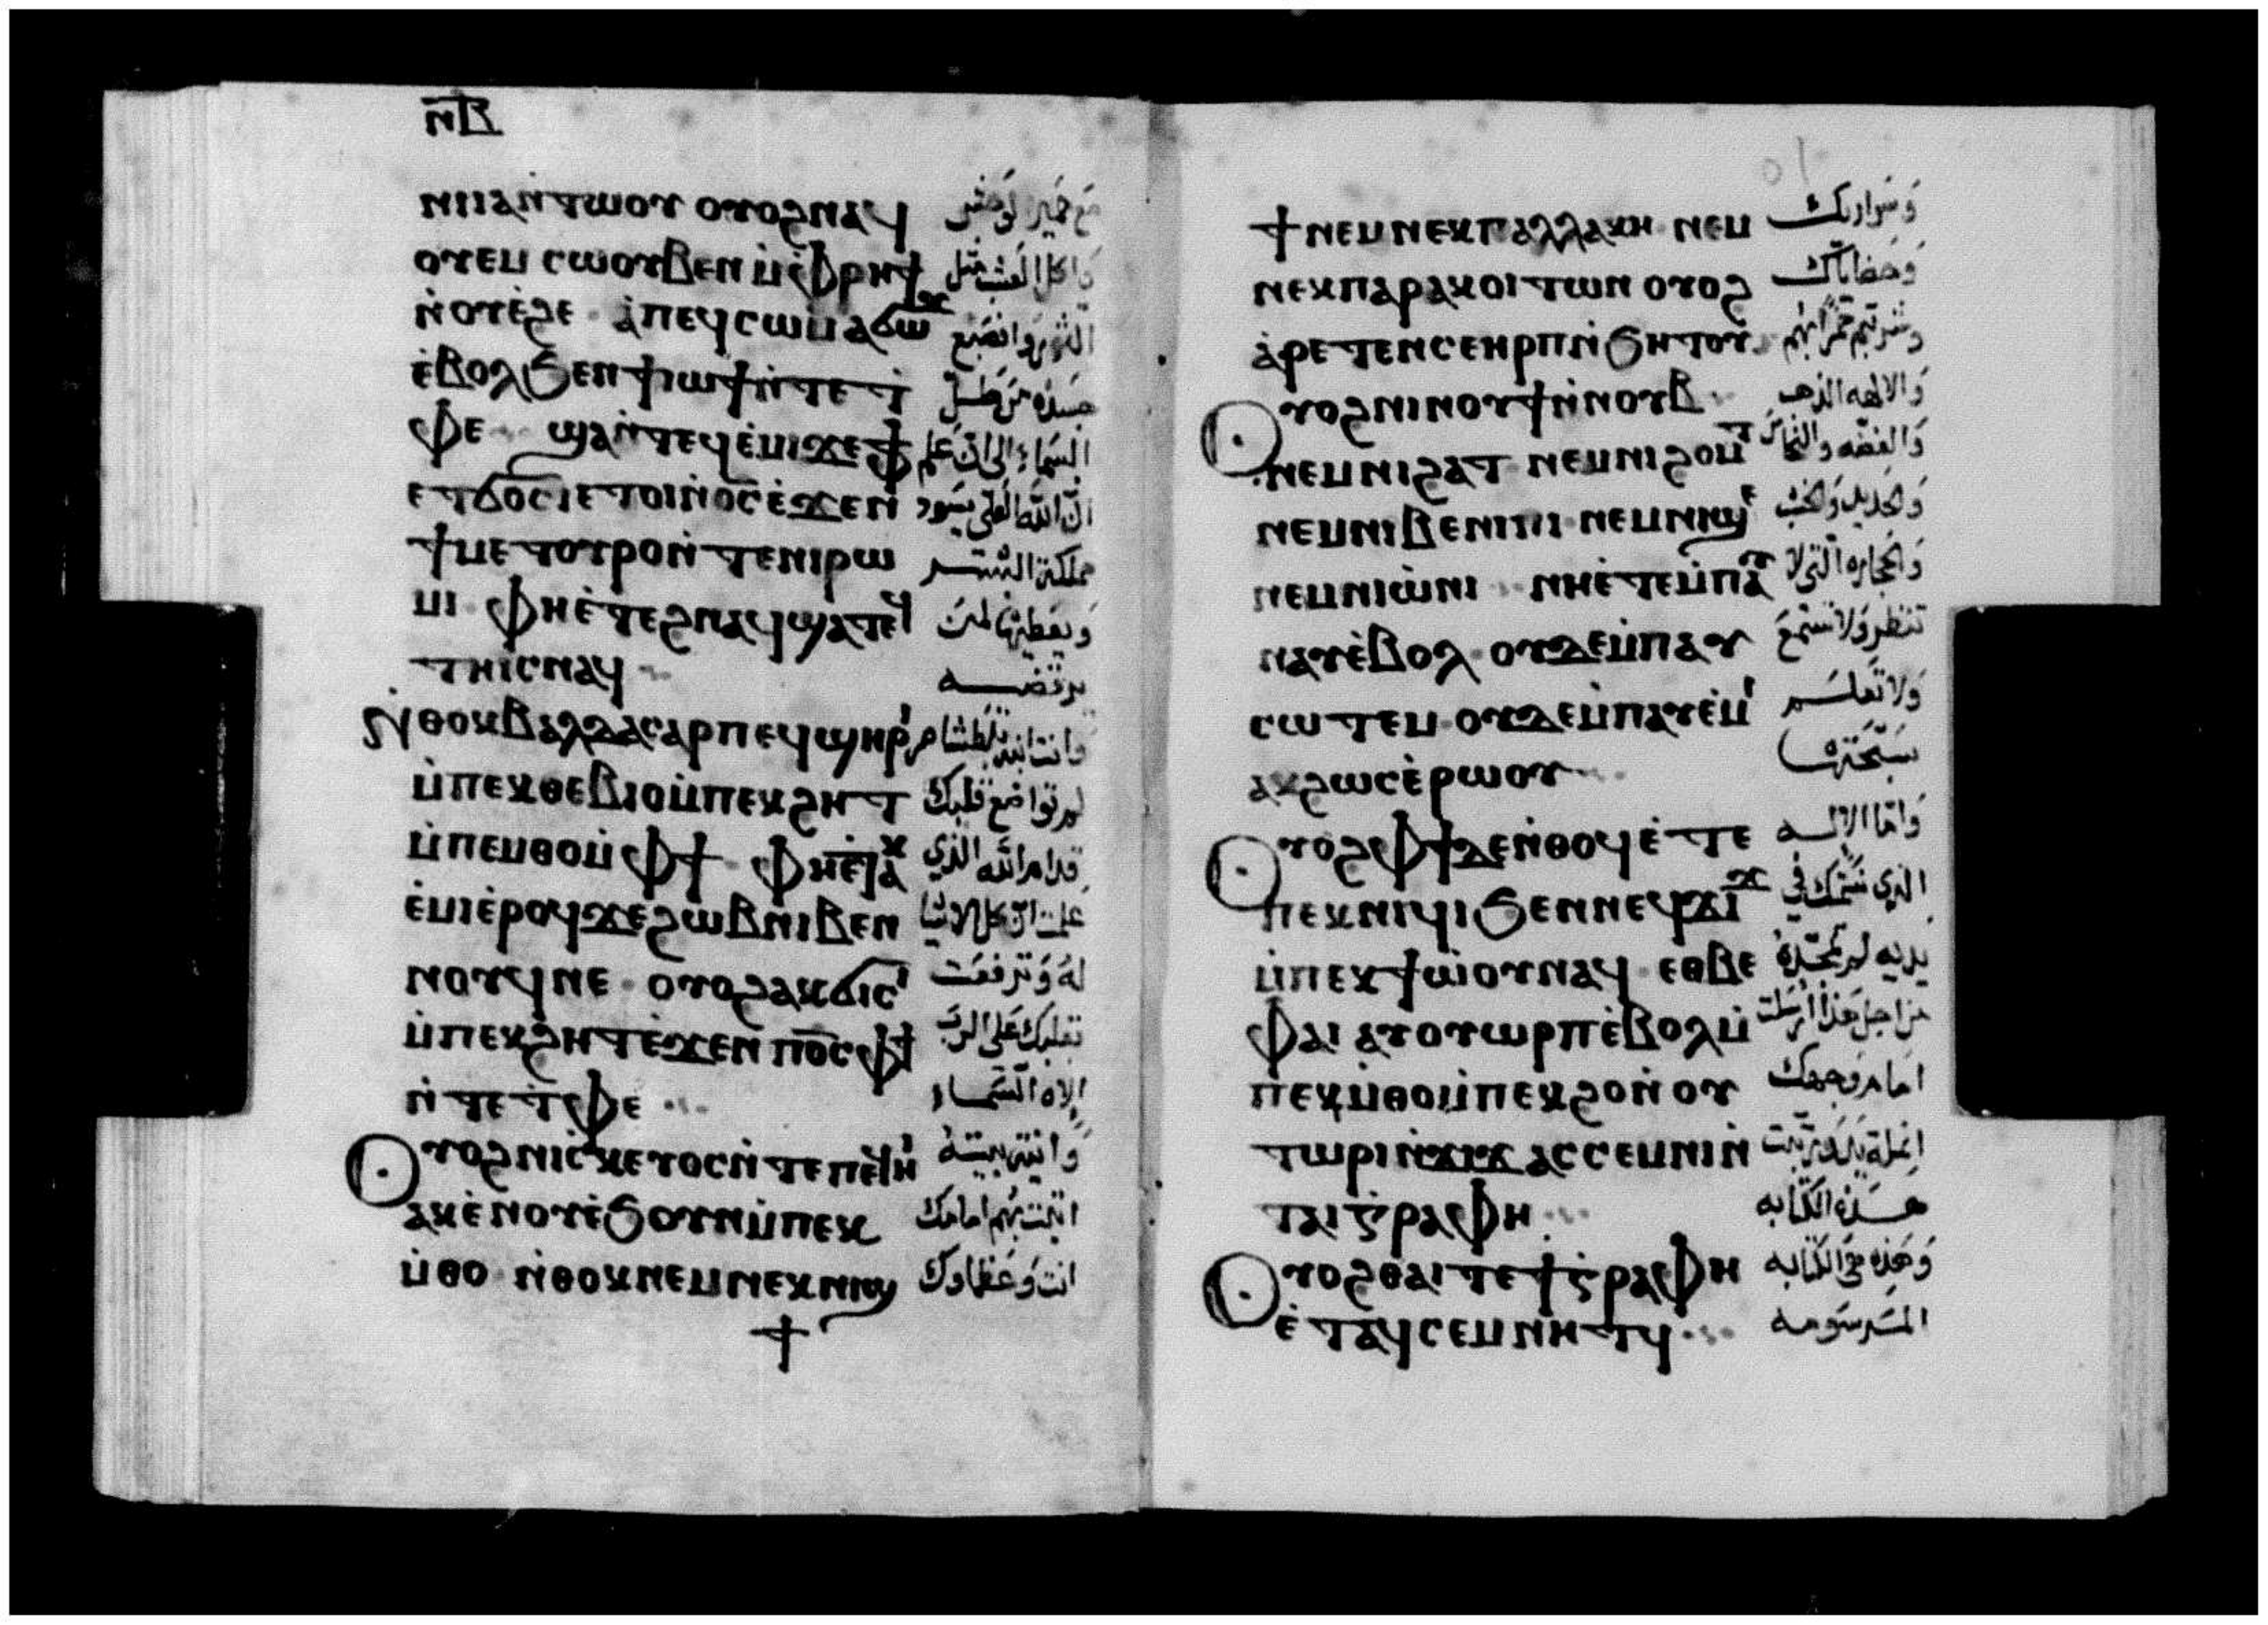 ⲛ̅ⲃ̅
ⲛⲓⲓⲁⲛ̀ⲧⲱⲟⲩ ⲟⲩⲟϩⲛⲁϥ مع حمير الوحش
ⲟⲩⲉⲙ ⲥⲱⲟⲩⲃⲉⲛ ⲙ̀ⲫⲣⲏϯ واكل العشب مثل
ⲛ̀ⲟⲩⲉ̀ϩⲉ ⲁ̀ⲡⲉϥⲥⲱⲙⲁϭⲱϫ الثور وانصبغ
ⲉ̀ⲃⲟⲗϧⲉⲛϯⲓⲱϯⲛ̀ⲧⲉⲧ̀ جسده من طل
ⲫⲉ ϣⲁⲛ̀ⲧⲉϥⲉ̀ⲙⲓϫⲉⲫϯ السماء الى ان علم
ⲉⲧϭⲟⲥⲓ ⲉⲧⲟⲓⲛ̀ⲟ̅ⲥ̅ⲉ̀ϫⲉⲛ ان الله العلي يسود
ϯⲙⲉⲧⲟⲩⲣⲟⲛ̀ⲧⲉⲛⲓⲣⲱ مملكة البشر
ⲙⲓ ⲫⲏⲉ̀ⲧⲉϩⲛⲁϥϣⲁⲧⲉϥ ويعطيها لمن
ⲧⲏⲓⲥⲛⲁϥ يرتضيه
ⲛ̀ⲑⲟⲕⲃⲁⲗⲇⲁⲥⲁⲣⲡⲉϥϣⲏⲣⲓ وانت ابنه بلطشاصر
ⲙ̀ⲡⲉⲕⲑⲉⲃⲓⲟⲙ̀ⲡⲉⲕϩⲏⲧ لم تواضع قلبك
ⲙ̀ⲡⲉⲙⲑⲟⲙ̀ⲫϯ ⲫⲏⲉⲧⲁⲕ قدام الله الذي
ⲉ̀ⲙⲓⲉ̀ⲣⲟϥϫⲉϩⲱⲃⲛⲓⲃⲉⲛ علمت ان كل الاشيا
ⲛⲟⲩϥⲛⲉ ⲟⲩⲟϩⲁⲕϭⲓⲥⲓ له وترفعت
ⲙ̀ⲡⲉⲕϩⲏⲧⲉ̀ϫⲉⲛ ⲡ̅ⲟ̅ⲥ̅ⲫϯ بقلبك على الرب
ⲛ̀ⲧⲉⲧ̀ⲫⲉ الاه السماء
ⲟⲩⲟϩⲛⲓⲥⲕⲉⲩⲟⲥⲛ̀ⲧⲉⲡⲉϥⲏⲓ وانيته بيته
ⲁⲕⲉ̀ⲛⲟⲩⲉ̀ϧⲟⲩⲛⲙ̀ⲡⲉⲕ اتيت بهم امامك
ⲙ̀ⲑⲟ ⲛ̀ⲑⲟⲕⲛⲉⲙⲛⲉⲕⲛⲓϣ انت وعظماوك
ϯ
ϯⲛⲉⲙⲛⲉⲕⲡⲁⲗⲗⲁⲕⲏ ⲛⲉⲙ وسراريك
ⲛⲉⲕⲡⲁⲣⲁⲕⲟⲓⲧⲱⲛ ⲟⲩⲟϩ وحضاياك
ⲁ̀ⲣⲉⲧⲉⲛⲥⲉⲏⲣⲡⲛ̀ϧⲏⲧⲟⲩ وشربتم خمرا بهم
ⲟⲩⲟϩⲛⲓⲛⲟⲩϯⲛ̀ⲛⲟⲩⲃ والالهه الذهب
ⲛⲉⲙⲛⲓϩⲁⲧ ⲛⲉⲙⲛⲓϩⲟⲙⲧ والفضه والنحاس
ⲛⲉⲙⲛⲓⲃⲉⲛⲓⲡⲓ ⲛⲉⲙⲛⲓϣⲉ والحديد والخشب
ⲛⲉⲙⲛⲓⲱ̀ⲛⲓ ⲛⲏⲉ̀ⲧⲉⲙ̀ⲡⲁⲩ والحجاره التي لا
ⲛⲁⲩⲉ̀ⲃⲟⲗ ⲟⲩⲇⲉⲙ̀ⲡⲁⲩ تنظر ولا تسمع
ⲥⲱⲧⲉⲙ ⲟⲩⲇⲉⲙ̀ⲡⲁⲩⲉ̀ⲙⲓ ولا تعلم
ⲁⲕϩⲱⲥⲉ̀ⲣⲱⲟⲩ سبحتها
ⲟⲩⲟϩⲫϯⲇⲉⲛ̀ⲑⲟϥⲉ̀ⲧⲉ واما الاله
ⲡⲉⲕⲛⲓϥⲓϧⲉⲛⲛⲉϥϫⲓϫ الذي نسمتك في
ⲙ̀ⲡⲉⲕϯⲱ̀ⲟⲩⲛⲁϥ ⲉⲑⲃⲉ يديه لم تمجده
ⲫⲁⲓ ⲁⲩⲟⲩⲱⲣⲡⲉ̀ⲃⲟⲗⲙ̀ من اجل هذا ارسلت
ⲡⲉⲕⲙ̀ⲑⲟⲙ̀ⲡⲉⲕϩⲟⲛ̀ⲟⲩ امام وجهك
ⲧⲱⲣⲓⲛ̀ϫⲓϫ ⲁⲥⲥⲉⲙⲛⲓⲛ̀
ⲧⲁⲓⲅⲣⲁⲫⲏ هذه الكتابه
ⲟⲩⲟϩⲑⲁⲓⲧⲉϯⲅⲣⲁⲫⲏ وهذه هي الكتابه
ⲉ̀ⲧⲁϥⲥⲉⲙⲛⲏⲧϥ المرسومه